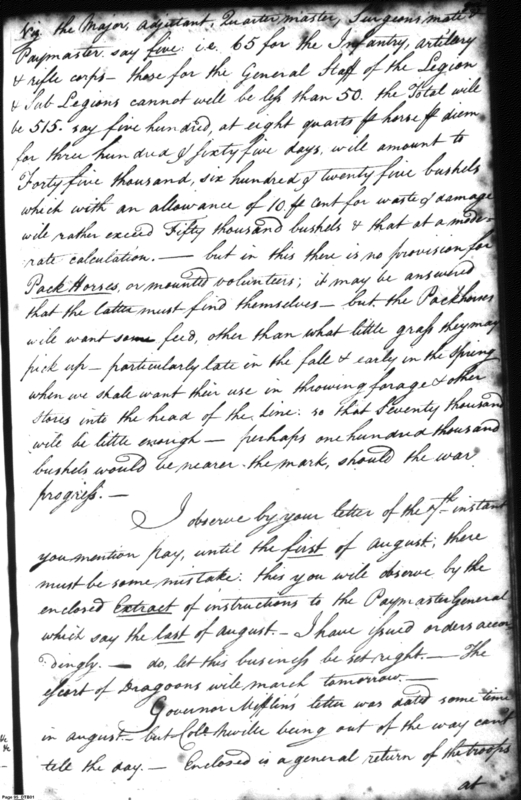 Viz. the Major, adjutant, Quarter master, Surgeons mate &
Paymaster, say five: i.e. 65 for the Infantry, artillery
& rifle corps— those for the General Staff of the Legion
& Sub Legions cannot well be less than 50. the Total will
be 515. say five hundred, at eight quarts ⅌ horse ⅌ diem
for three hundred & sixty five days, will amount to
Forty five thousand, six hundred & twenty five bushels
which with an allowance of 10 ⅌ Cent for waste & damage
will rather exceed Fifty thousand bushels & that at a mode-
rate calculation. — but in this there is no provision for
Pack Horses, or mounted volunteers; it may be answered
that the latter must find themselves— but the Packhorses
will want some feed, other than what little grass they may
pick up— particularly late in the fall & early in the Spring
when we shall want their use in throwing forage & other
stores into the head of the Line: so that Seventy thousand
will be little enough— perhaps one hundred thousand
bushels would be nearer the mark, should the war
progress. —
I observe by your letter of the 7th instant
you mention pay, until the first of august; there
must be some mistake: this you will observe by the
enclosed Extract of instructions to the Paymaster General
which say the last of august. — I have issued orders accor
dingly. — do, let this business be set right. — The
escort of Dragoons will march tomorrow. —
Governor Mifflin's letter was dated some time
in august— but Colo Neville being out of the way cant
tell the day — Enclosed is a general return of the troops
at
Page 95 DTB01